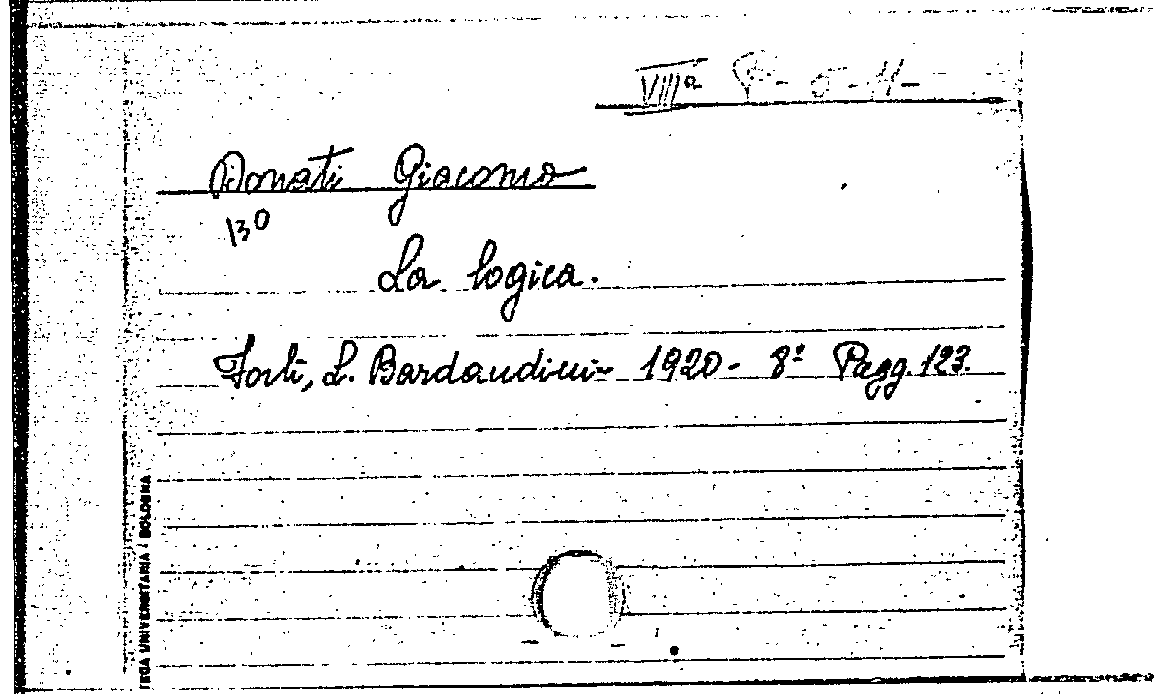 VIIIa
Donati Giacomo
130
La logica.
Forlì, L. Bordandini - 1920 - 8° Pagg. 123.
UNIVERSITARIA / BOLOGNA